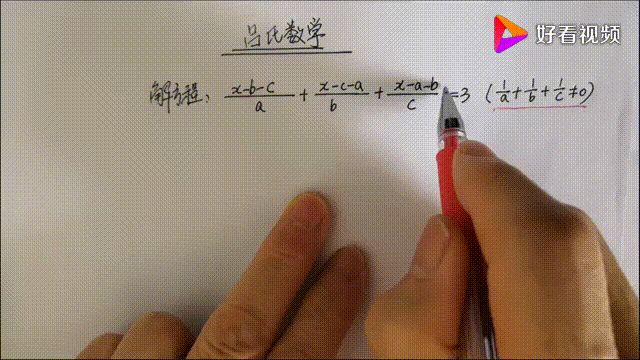 吕氏数学
好看视频
解方程: (x-b-c)/a + (x-c-a)/b + (x-a-b)/c = 3 (1/a + 1/b + 1/c ≠ 0)